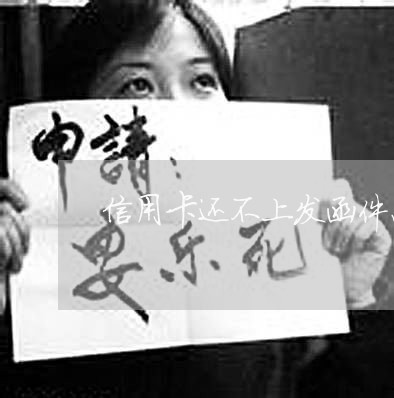 申請：
信用卡还不上发函件,
安乐死